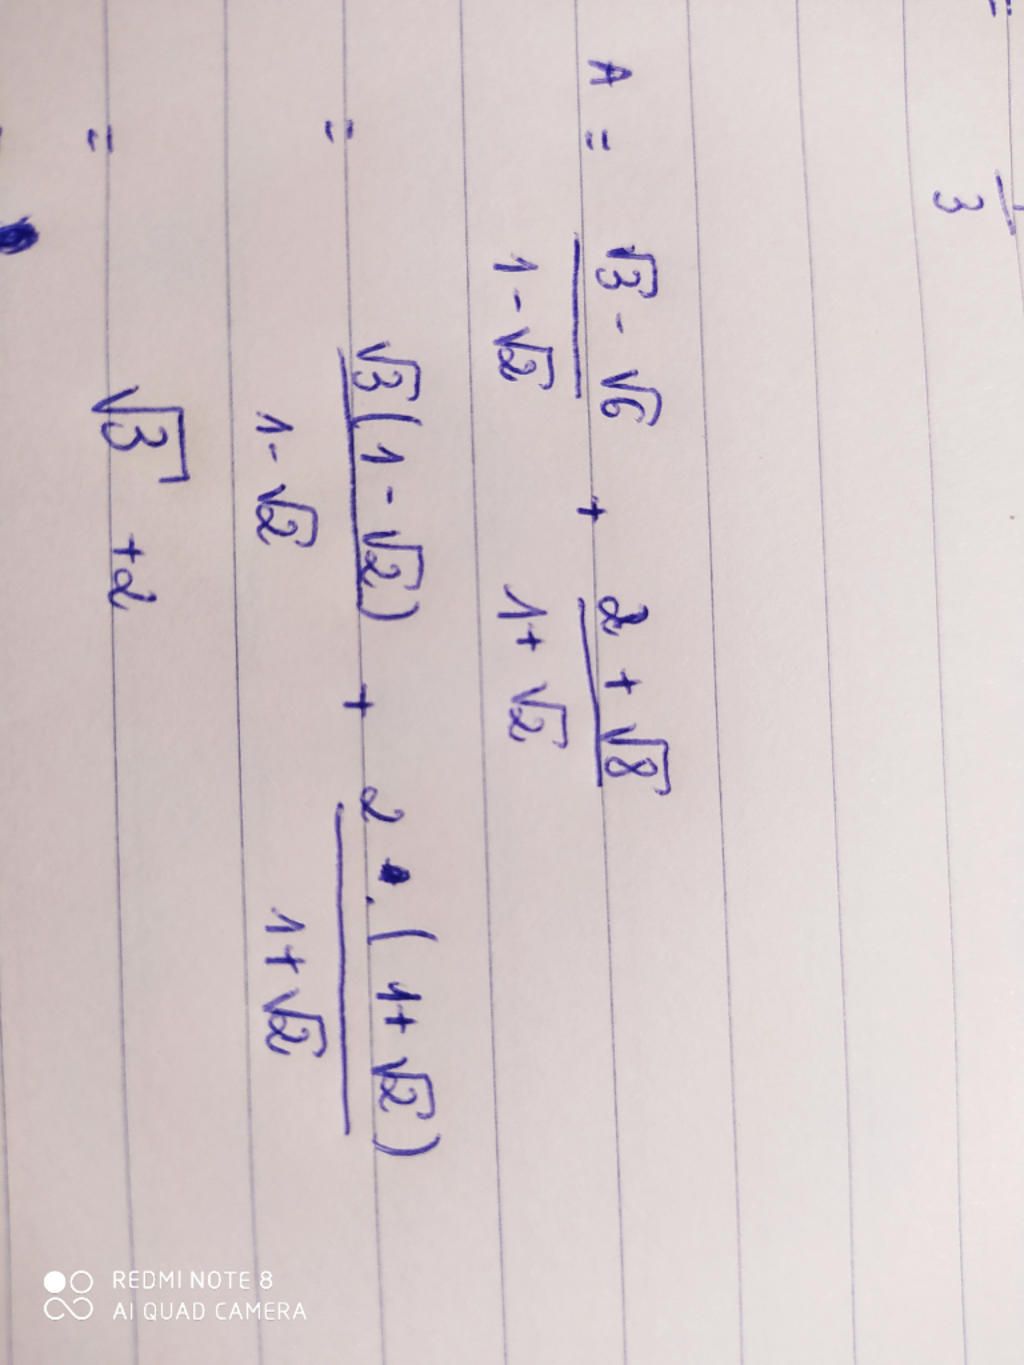 =
3
A = √3 - √6 / 1 - √2 + 2 + √8 / 1 + √2
= √3 (1 - √2) / 1 - √2 + 2 . (1 + √2) / 1 + √2
= √3 + 2
REDMI NOTE 8
AI QUAD CAMERA